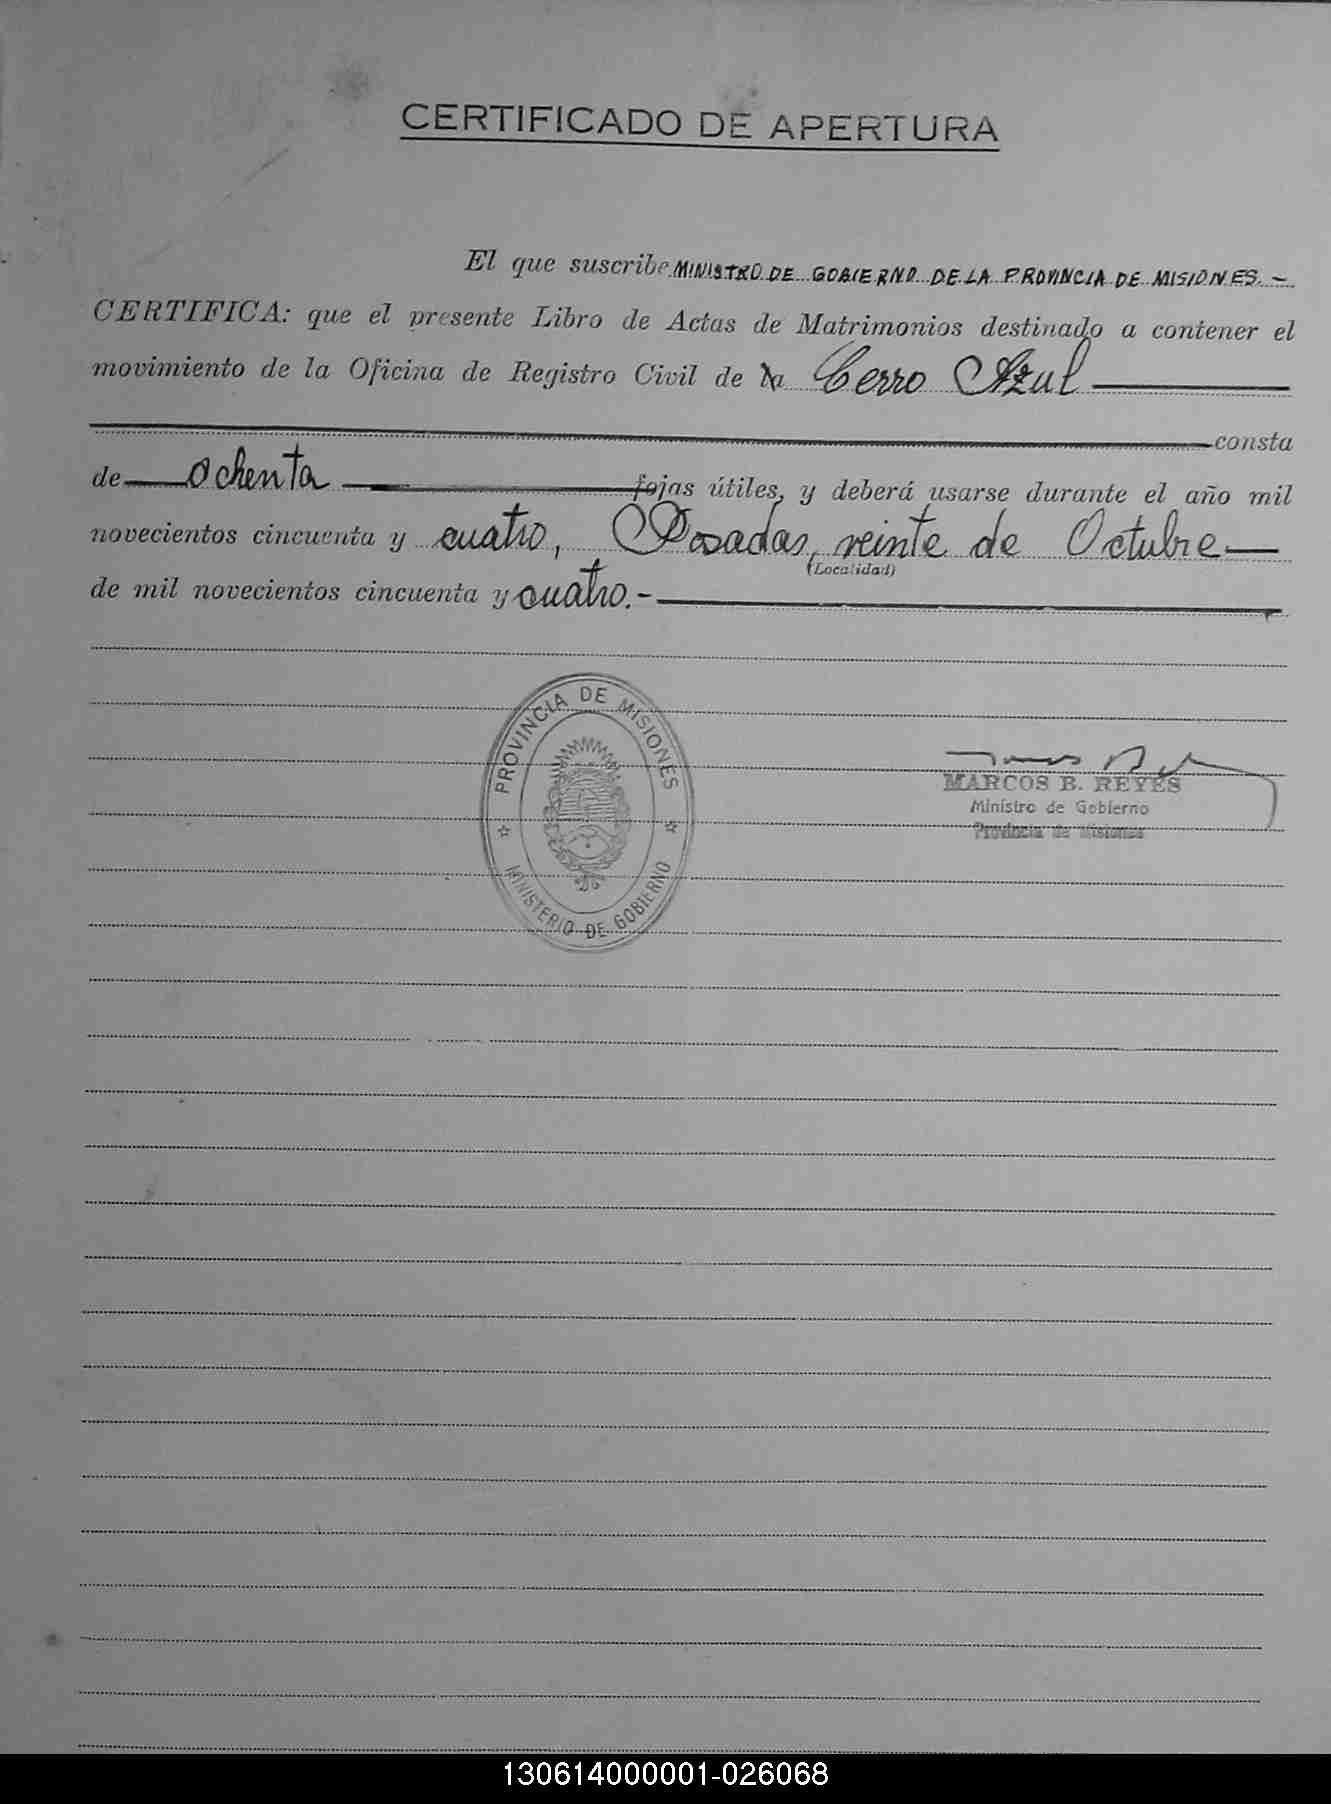 CERTIFICADO DE APERTURA
El que suscribe MINISTRO DE GOBIERNO DE LA PROVINCIA DE MISIONES.-
CERTIFICA: que el presente Libro de Actas de Matrimonios destinado a contener el
movimiento de la Oficina de Registro Civil de la Cerro Azul
consta
de ochenta fojas útiles, y deberá usarse durante el año mil
novecientos cincuenta y cuatro, Posadas, veinte de Octubre
(Localidad)
de mil novecientos cincuenta y cuatro.-
PROVINCIA DE MISIONES
MINISTERIO DE GOBIERNO
MARCOS B. REYES
Ministro de Gobierno
Provincia de Misiones
130614000001-026068